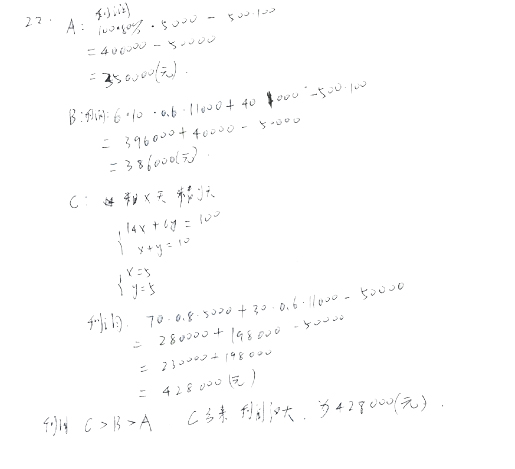 22. A: 利润 100·80% · 5000 - 500·100
= 400000 - 50000
= 350000(元).
B: 利润: 6·10 · 0.6 · 11000 + 40 · 1000 - 500·100
= 396000 + 40000 - 50000
= 386000(元).
C: x天 y天
{ 14x + 6y = 100
x + y = 10
{ x = 5
y = 5
利润: 70 · 0.8 · 5000 + 30 · 0.6 · 11000 - 50000
= 280000 + 198000 - 50000
= 230000 + 198000
= 428000(元)
利润 C > B > A C方案 利润最大. 为428000(元).